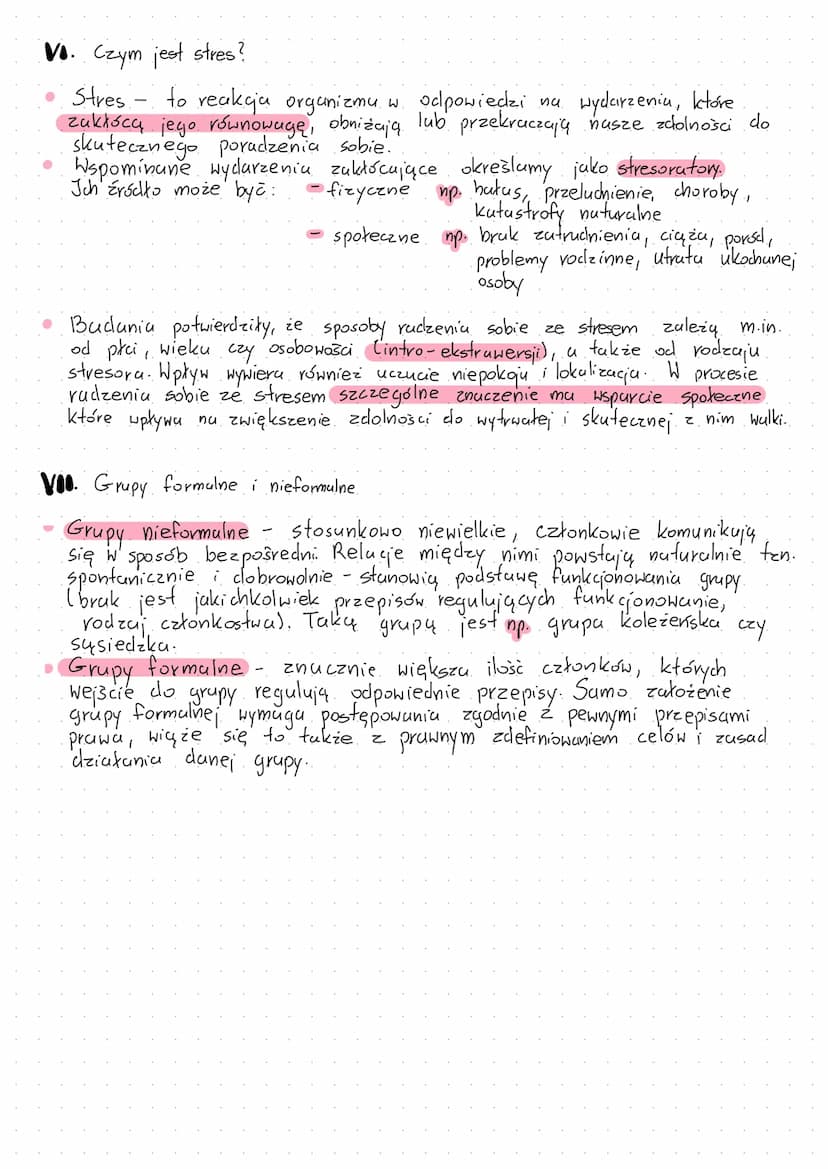 VI. Czym jest stres?
• Stres – to reakcja organizmu w odpowiedzi na wydarzenia, które
zakłócą jego równowagę, obniżają lub przekraczają nasze zdolności do
skutecznego poradzenia sobie.
• Wspominane wydarzenia zakłócające określamy jako stresoratory.
Ich źródło może być: – fizyczne np. hałas, przeludnienie, choroby,
katastrofy naturalne
– społeczne np. brak zatrudnienia, ciąża, poród,
problemy rodzinne, utrata ukochanej
osoby
• Badania potwierdziły, że sposoby radzenia sobie ze stresem zależą m.in.
od płci, wieku czy osobowości (intro-ekstrawersji), a także od rodzaju
stresora. Wpływ wywiera również uczucie niepokoju i lokalizacja. W procesie
radzenia sobie ze stresem szczególne znaczenie ma wsparcie społeczne
które wpływa na zwiększenie zdolności do wytrwałej i skutecznej z nim walki.
VII. Grupy formalne i nieformalne
- Grupy nieformalne – stosunkowo niewielkie, członkowie komunikują
się w sposób bezpośredni. Relacje między nimi powstają naturalnie tzn.
spontanicznie i dobrowolnie – stanowią podstawę funkcjonowania grupy
(brak jest jakichkolwiek przepisów regulujących funkcjonowanie,
rodzaj członkostwa). Taką grupą jest np. grupa koleżeńska czy
sąsiedzka.
• Grupy formalne – znacznie większa ilość członków, których
wejście do grupy regulują odpowiednie przepisy. Samo założenie
grupy formalnej wymaga postępowania zgodnie z pewnymi przepisami
prawa, wiąże się to także z prawnym zdefiniowaniem celów i zasad
działania danej grupy.